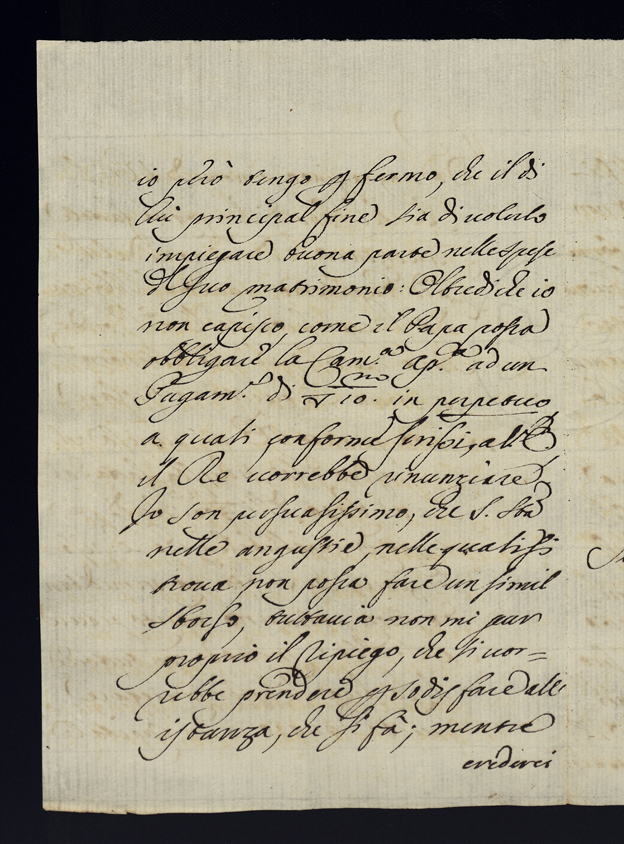 io però tengo p fermo, che il di
lui principal fine sia di volerlo
impiegare buona parte nelle spese
del suo matrimonio: Oltrediche io
non capisco, come il Papa possa
obbligare la Cam.ª ap.ª ad un
Pagam.º di 10. in perpetuo
a quali conforme scrissi, a
il Re vorrebbe rinunziare
Io son persuasissimo, che S. Stà
nelle angustie, nelle quali si
trova non possa fare un simil
sborso, tuttavia non mi par
proprio il ripiego, che si vor=
rebbe prendere p sodisfare all'
istanza, che si fà; mentre
crederei